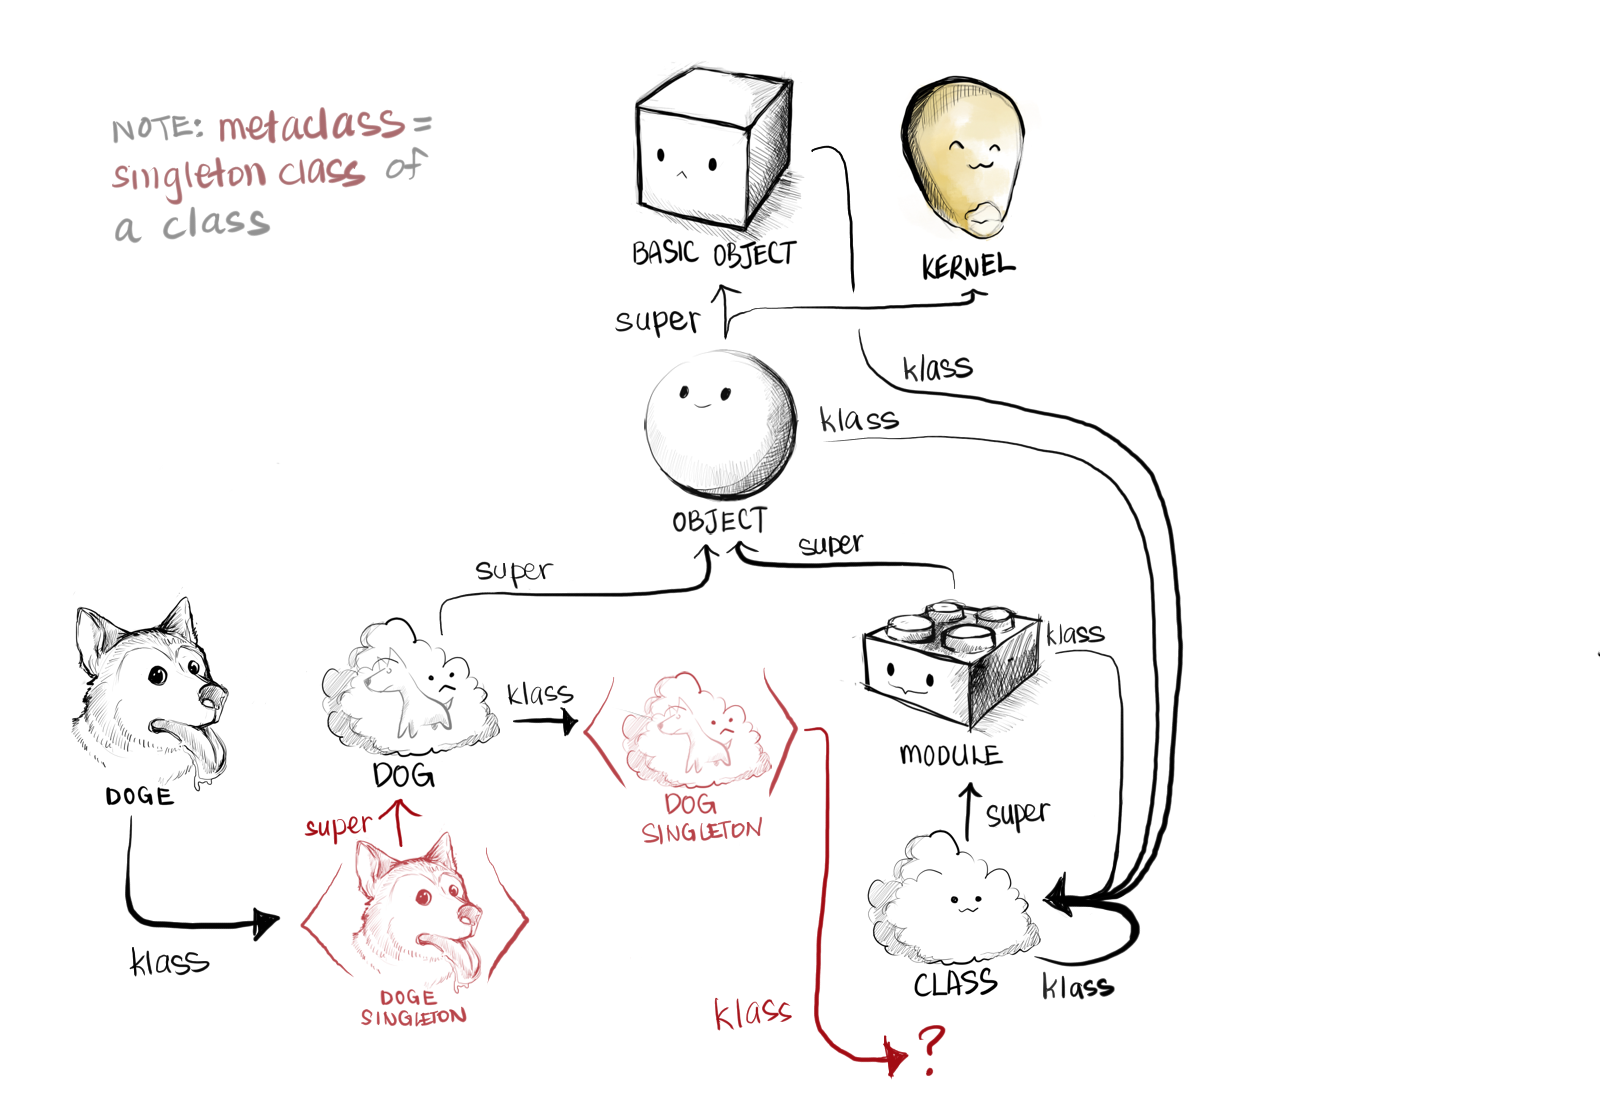 NOTE: metaclass =
singleton class of
a class
BASIC OBJECT
KERNEL
super
klass
klass
OBJECT
super
super
klass
klass
MODULE
DOG
DOGE
DOG
SINGLETON
super
super
klass
klass
DOGE
SINGLETON
CLASS
klass
klass
?